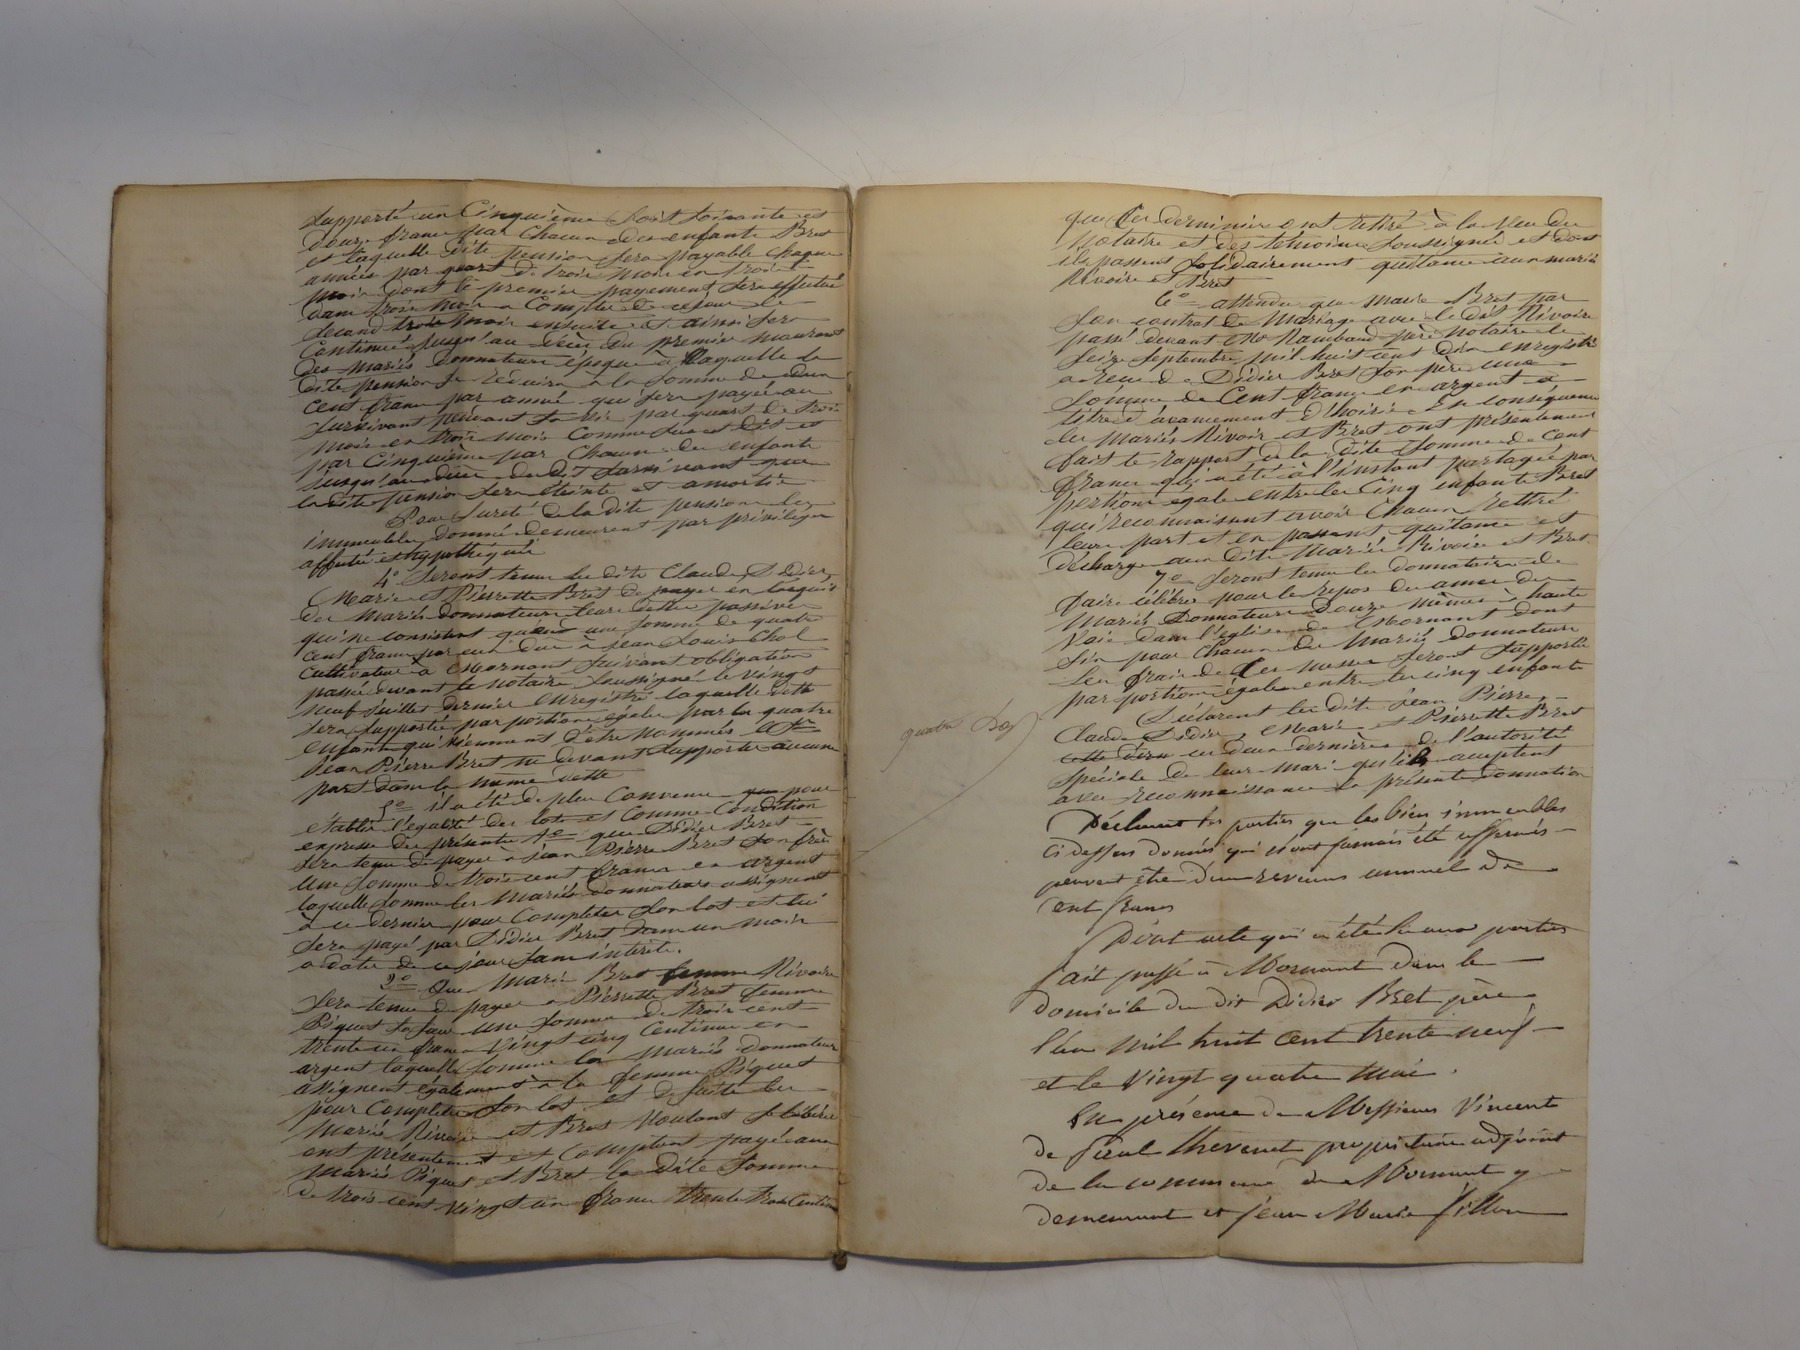 supporté un Cinquième soit soixante et
douze francs par chacun des enfants Bret
et laquelle dite pension sera payable chaque
années par quart de trois mois en trois
mois dont le premier payement sera effectué
dans trois mois a Compter de ce jour le
second trois mois ensuite et ainsi sera
Continué jusqu'au décès du premier mourant
des mariés donnateurs époque à laquelle la
dite pension se réduira a la somme de deux
cent francs par année qui sera payée au
survivant pendant sa vie par quart de trois
mois en trois mois comme dessus est dit et
par cinquième par chacun des enfants
jusqu'au décès du dit survivant que
la dite pension sera éteinte et amortie
Pour sureté de la dite pension les
immeubles donnés demeurent par privilège
affectés et hypothéqués
4° Seront tenus les dits Claude, Didier,
Marie et Pierrette Bret de payer en l'acquit
des mariés donnateurs leurs dettes passives
qui ne consistent qu'en une somme de quatre
cent francs par eux due à Jean Louis Chol
cultivateur à Mornant suivant obligation
passée devant le notaire soussigné le vingt
neuf juillet dernier enregistré laquelle dette
sera supportée par portions égales par les quatre
enfants qui viennent d'être nommés
Jean Pierre Bret ne devant supporter aucune
part dans la même dette
5° il a été de plus convenu que pour
établir l'égalité des lots et comme Condition
expresse des présentes 1° que Didier Bret
sera tenu de payer à Jean Pierre Bret son frère
une somme de trois cent francs en argent
laquelle somme les mariés donnateurs assignent
à ce dernier pour completer son lot et lui
sera payé par Didier Bret dans un mois
a dater de ce jour sans intérêts.
2° Que Marie Bret femme Rivoire
sera tenue de payer a Pierrette Bret femme
Piquet sa sœur une somme de trois cent
trente un francs vingt cinq centimes en
argent laquelle somme les mariés donnateurs
assignent également à la femme Piquet
pour completer son lot et de suite les
mariés Rivoire et Bret voulant se libérer
ont présentement et comptant payé aux
mariés Piquet et Bret la dite somme
de trois cent vingt un francs trente trois centimes
que ces derniniers ont rettiré à la vue du
Notaire et des témoins soussignés et dont
ils passent solidairement quittance aux mariés
Rivoire et Bret
6° attendu que Marie Bret par
son contrat de mariage avec le dit Rivoire
passé devant Me Rambaud père notaire le
seize septembre mil huit cent dix enregistré
a reçu de Didier Bret son père une
somme de Cent francs en argent à
titre d'avancement d'hoirie. En conséquence
les mariés Rivoire et Bret ont présentement
fait le rapport de la dite somme de cent
francs qui a été à l'instant partagée par
portions égales entre les Cinq enfants Bret
qui reconnaissent avoir chacun rettiré
leurs part et en passent quittance et
décharge aux dits mariés Rivoire et Bret
7° Seront tenus les donnataires de
faire célébrer pour le repos des ames des
mariés donnateurs douze messes à haute
voix dans l'eglise de Mornant dont
six pour chacun des mariés donnateurs
les frais de ces messes seront supportés
par portions égales entre les cinq enfants
Déclarent les dits Jean Pierre,
Claude, Didier, Marie et Pierrette Bret
ces deux dernières de l'autorité
spéciale de leurs maris qu'ils acceptent
avec reconnaissance la présente donnation
Déclarent les parties que les biens immeubles
ci dessus donnés qui n'ont jamais été affermés
peuvent être d'un revenus annuel de
cent francs
Dont acte qui a été lu aux parties
fait passé à Mornant dans le
domicile du dit Didier Bret père
l'an mil huit cent trente neuf
et le vingt quatre mai.
En présence de Messieurs Vincent
de Paul Thevenet propriétaire adjoint
de la commune de Mornant y
demeurant et Jean Marie Fillon
quatre